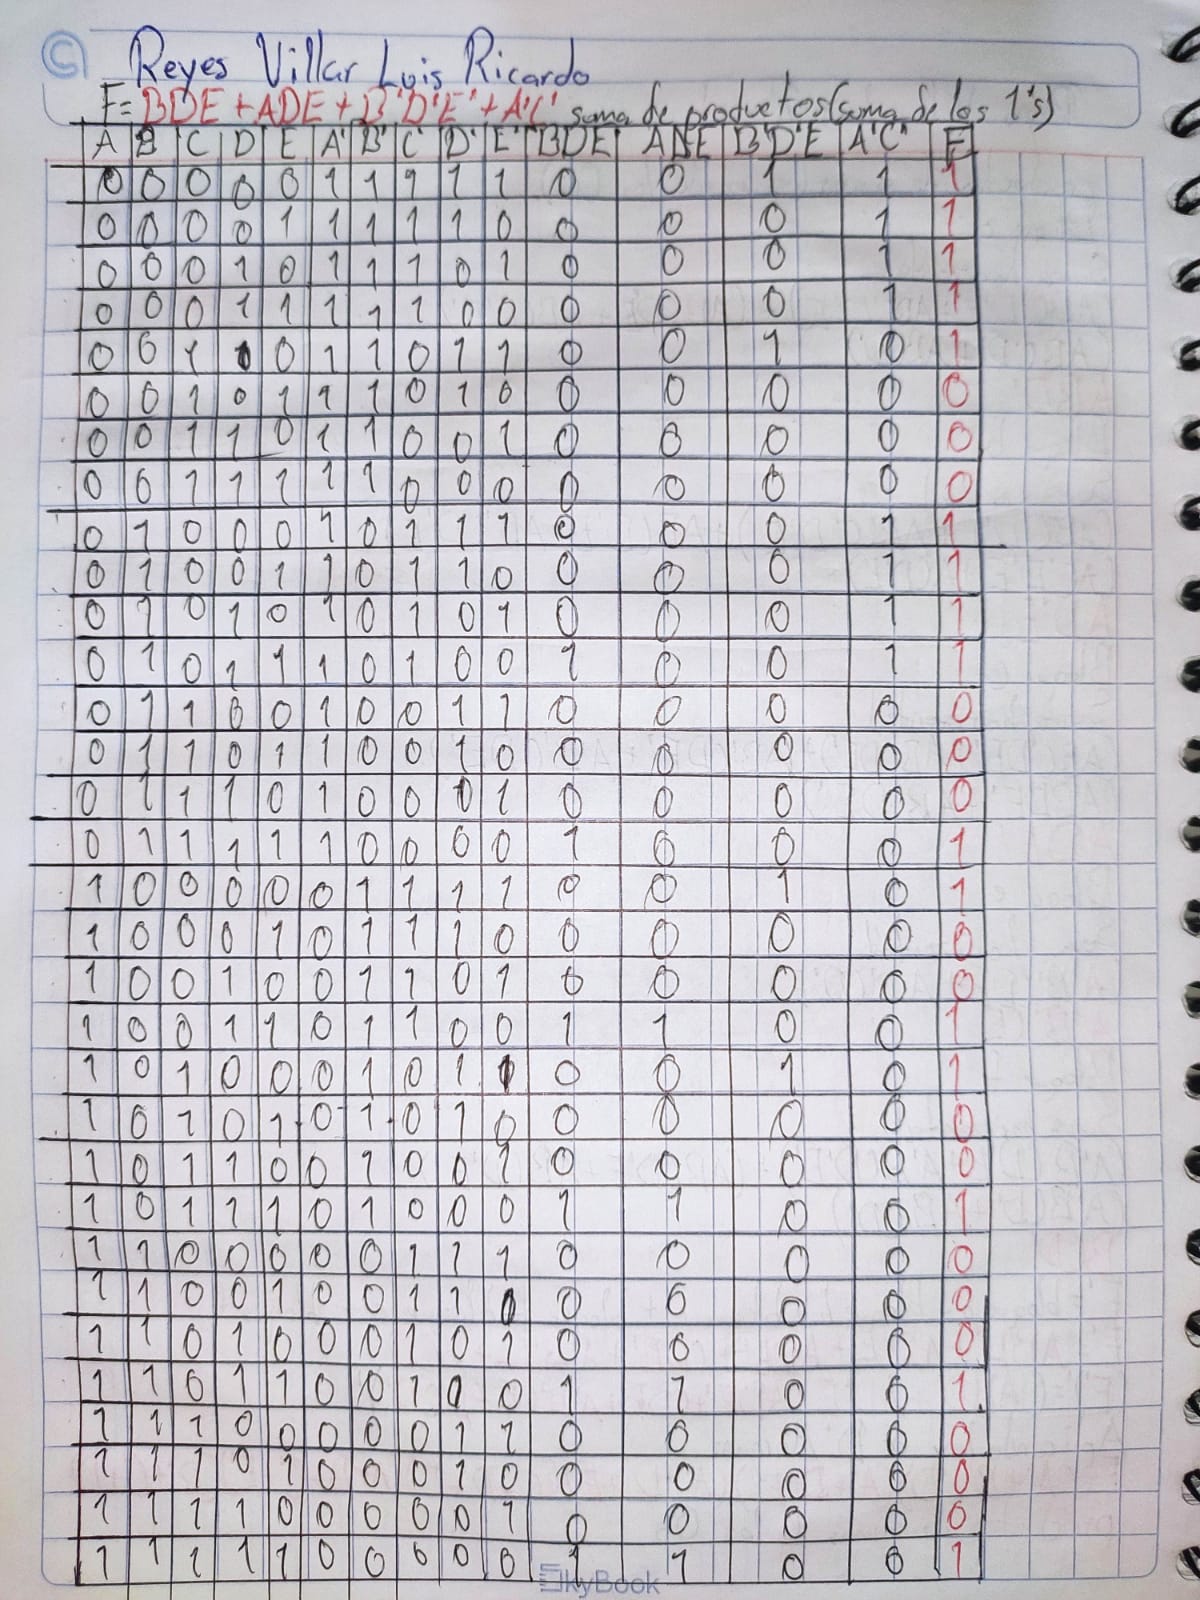 Reyes Villar Luis Ricardo
F= BDE + ADE + B'D'E' + A'C' suma de productos (suma de los 1's)
A B C D E A' B' C' D' E' BDE ADE B'D'E' A'C' F
0 0 0 0 0 1 1 1 1 1 0 0 1 1 1
0 0 0 0 1 1 1 1 1 0 0 0 0 1 1
0 0 0 1 0 1 1 1 0 1 0 0 0 1 1
0 0 0 1 1 1 1 1 0 0 0 0 0 1 1
0 0 1 0 0 1 1 0 1 1 0 0 1 0 1
0 0 1 0 1 1 1 0 1 0 0 0 0 0 0
0 0 1 1 0 1 1 0 0 1 0 0 0 0 0
0 0 1 1 1 1 1 0 0 0 0 0 0 0 0
0 1 0 0 0 1 0 1 1 1 0 0 0 1 1
0 1 0 0 1 1 0 1 1 0 0 0 0 1 1
0 1 0 1 0 1 0 1 0 1 0 0 0 1 1
0 1 0 1 1 1 0 1 0 0 1 0 0 1 1
0 1 1 0 0 1 0 0 1 1 0 0 0 0 0
0 1 1 0 1 1 0 0 1 0 0 0 0 0 0
0 1 1 1 0 1 0 0 0 1 0 0 0 0 0
0 1 1 1 1 1 0 0 0 0 1 0 0 0 1
1 0 0 0 0 0 1 1 1 1 0 0 1 0 1
1 0 0 0 1 0 1 1 1 0 0 0 0 0 0
1 0 0 1 0 0 1 1 0 1 0 0 0 0 0
1 0 0 1 1 0 1 1 0 0 1 1 0 0 1
1 0 1 0 0 0 1 0 1 1 0 0 1 0 1
1 0 1 0 1 0 1 0 1 0 0 0 0 0 0
1 0 1 1 0 0 1 0 0 1 0 0 0 0 0
1 0 1 1 1 0 1 0 0 0 1 1 0 0 1
1 1 0 0 0 0 0 1 1 1 0 0 0 0 0
1 1 0 0 1 0 0 1 1 0 0 0 0 0 0
1 1 0 1 0 0 0 1 0 1 0 0 0 0 0
1 1 0 1 1 0 0 1 0 0 1 1 0 0 1
1 1 1 0 0 0 0 0 1 1 0 0 0 0 0
1 1 1 0 1 0 0 0 1 0 0 0 0 0 0
1 1 1 1 0 0 0 0 0 1 0 0 0 0 0
1 1 1 1 1 0 0 0 0 0 1 1 0 0 1
SkyBook